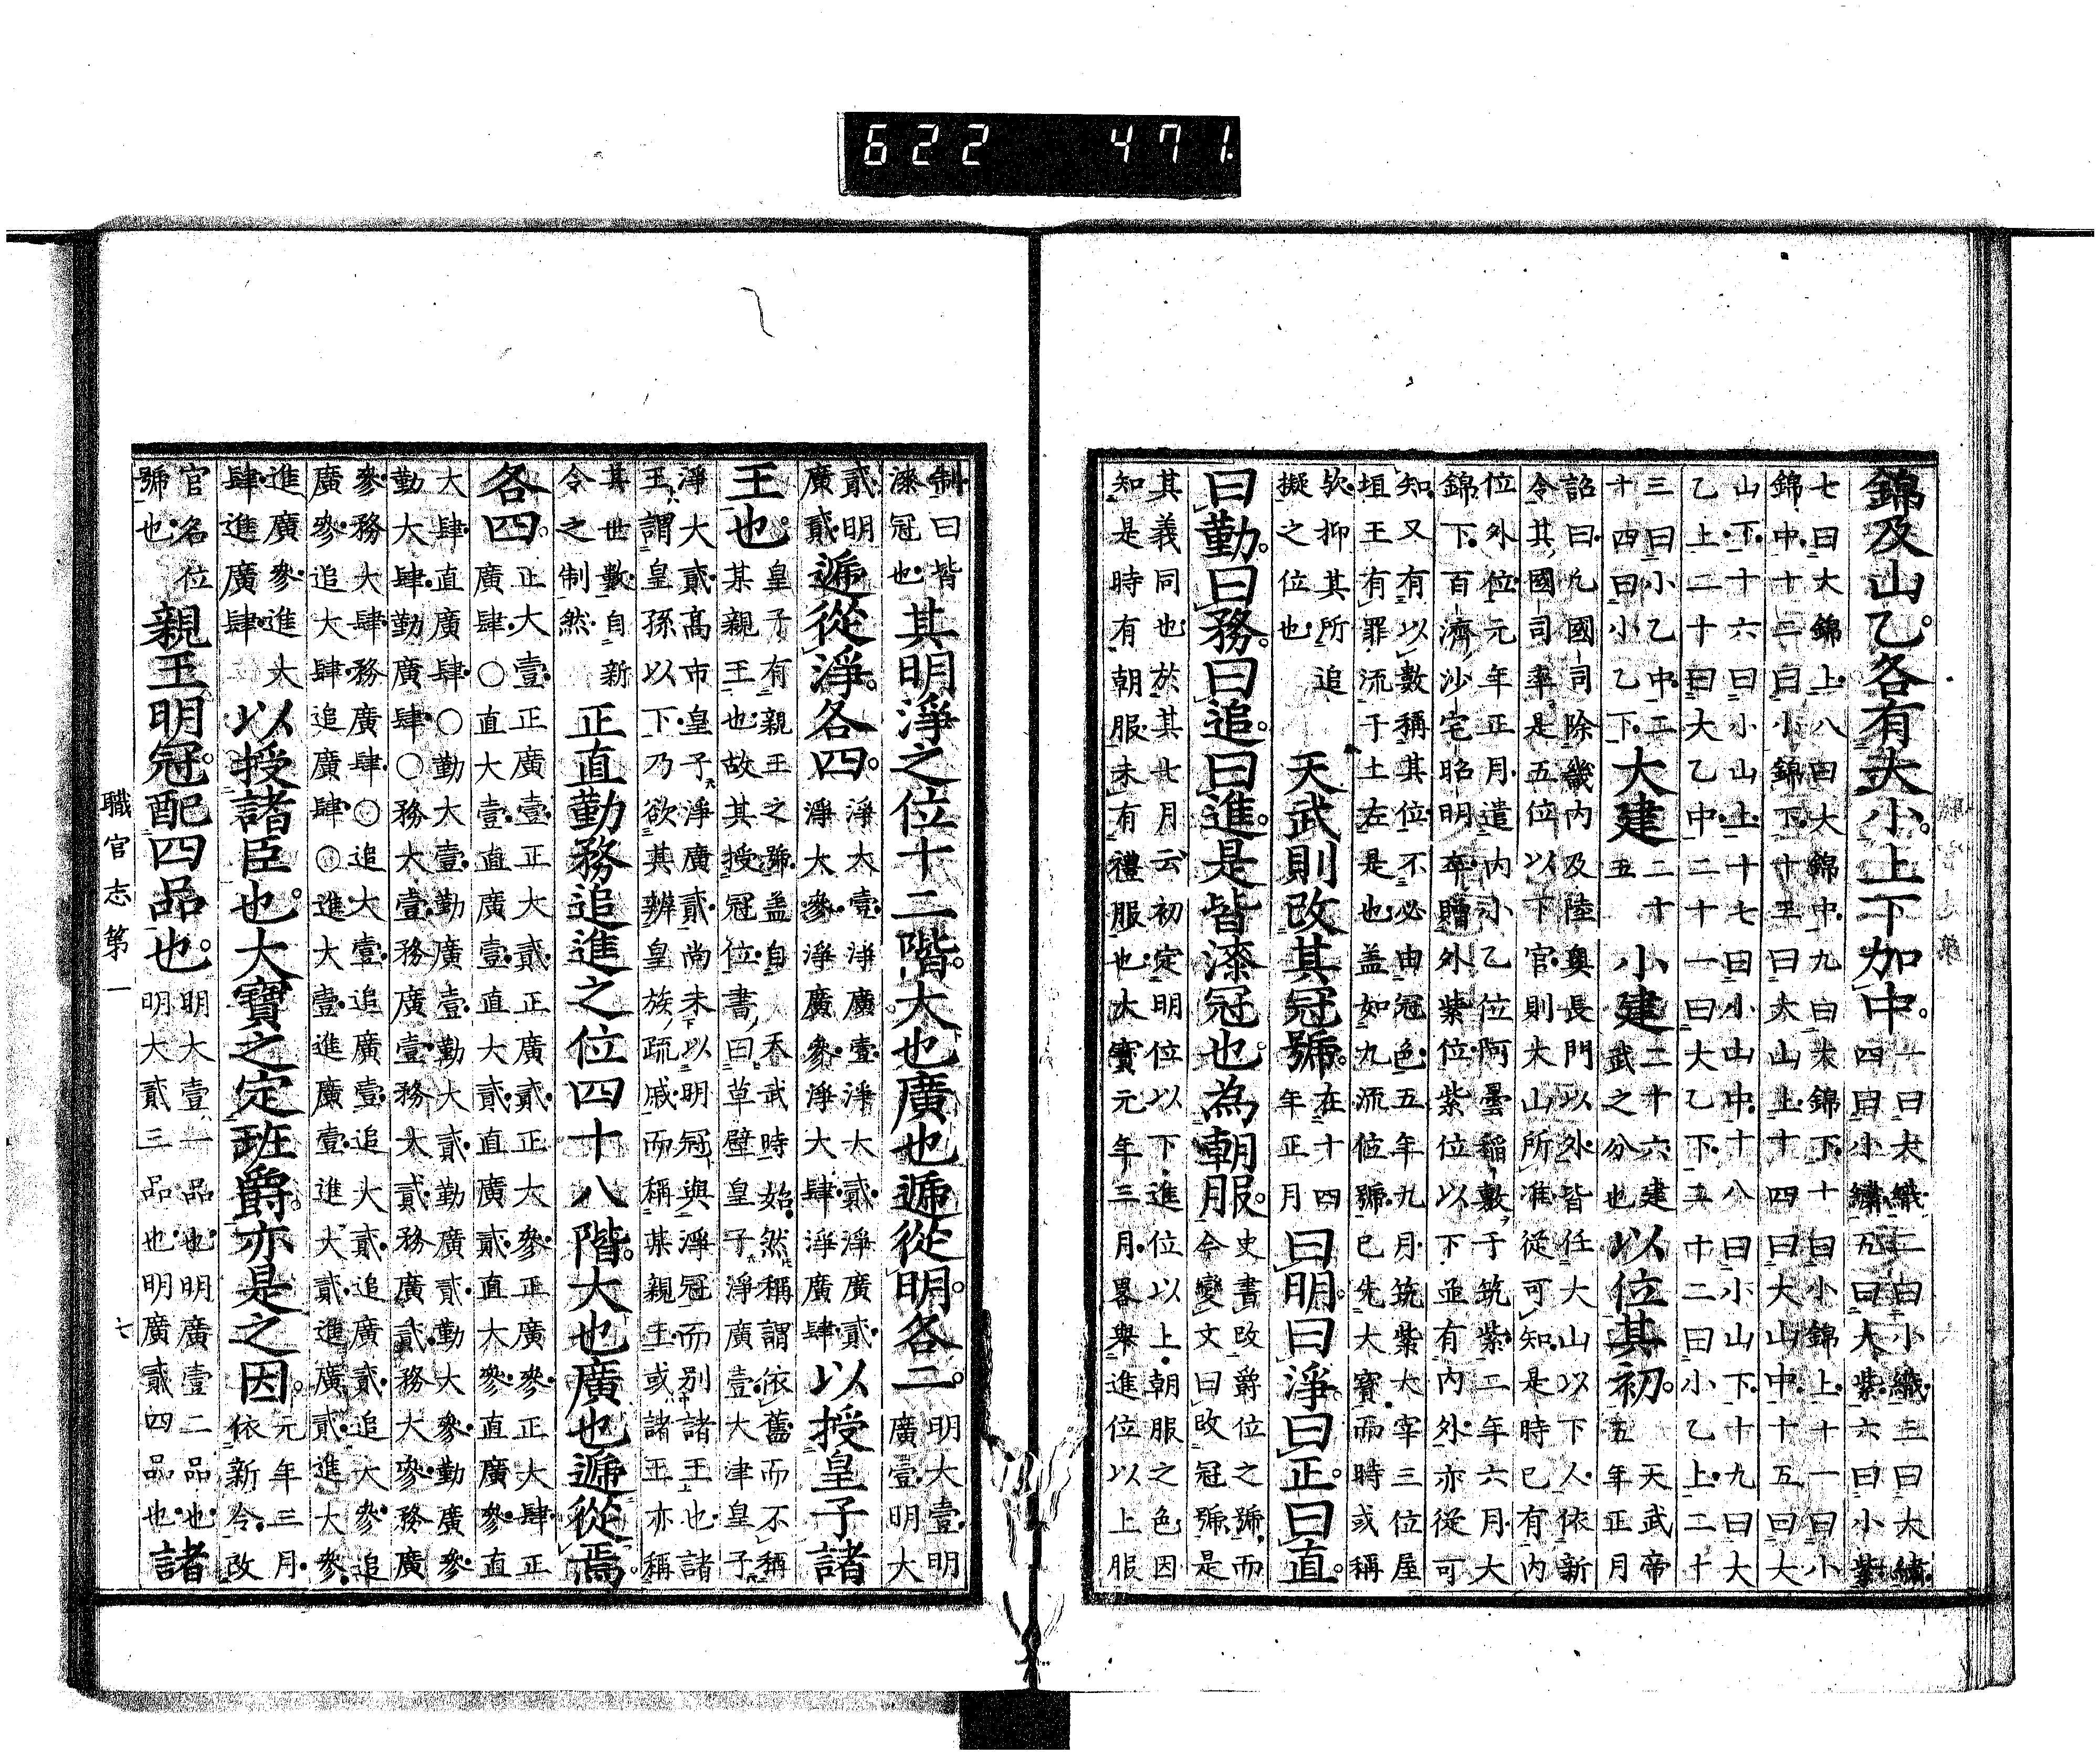 622 471.
錦及山乙。各有大小。上下加中。一曰大織。二曰小織。三曰大繡。四曰小繡。五曰大紫。六曰小紫
七曰大錦上。八曰大錦中。九曰大錦下。十曰小錦上。十一曰小錦中。十二曰小錦下。十三曰大山上。十四曰大山中。十五曰大
山下。十六曰小山上。十七曰小山中。十八曰小山下。十九曰大乙上。二十曰大乙中。二十一曰大乙下。二十二曰小乙上。二十
三曰小乙中。二十四曰小乙下。大建二十五 小建二十六建武之分也 以位其初。天武帝五年正月
詔曰。凡國司除畿內及陸奧長門以外。皆任大山以下人。依新令。其國司率是五位以下官。則大山所准從可知。是時已有內
位外位。元年正月。遣內小乙位阿曇稻敷于筑紫。二年六月。大錦下。百濟沙宅昭明卒。贈外紫位。紫位以下並有內外。亦從可
知。又有以數稱其位。不必由冠色。五年九月。筑紫大宰三位屋垣王有罪流于土左是也。盖如九流位號。已先大寶而時或稱
欤。抑其所追擬之位也。天武則改其冠號。在十四年正月 曰明。曰淨。曰正。曰直。
曰勤。曰務。曰追。曰進。是皆漆冠也。為朝服。史書改爵位之號。而今變文曰改冠號。是
其義同也。於其七月云初定明位以下。進位以上。朝服之色。因知是時有朝服。未有禮服也。大寶元年三月。畧舉進位以上服
制曰皆漆冠也。其明淨之位十二階。大也廣也遞從。明。各二。明大壹。明廣壹。明大
貳。明廣貳。遞從淨。各四。淨大壹。淨廣壹。淨大貳。淨廣貳。淨大參。淨廣參。淨大肆。淨廣肆。以授皇子諸
王也。皇子有親王之號。盖自天武時始。然稱謂依舊而不稱某親王也。故其授冠位。書曰草壁皇子淨廣壹。大津皇子
淨大貳。高市皇子淨廣貳。尚未以明冠與淨冠而別諸王也。諸王謂皇孫以下。乃欲其辨皇族疏戚而稱某親王或諸王亦稱
其世數。自新令之制然。正直勤務追進之位四十八階。大也廣也遞從焉。
各四。正大壹。正廣壹。正大貳。正廣貳。正大參。正廣參。正大肆。正廣肆。○直大壹。直廣壹。直大貳。直廣貳。直大參。直廣參。直
大肆。直廣肆。○勤大壹。勤廣壹。勤大貳。勤廣貳。勤大參。勤廣參。勤大肆。勤廣肆。○務大壹。務廣壹。務大貳。務廣貳。務大參。務廣
參。務大肆。務廣肆。○追大壹。追廣壹。追大貳。追廣貳。追大參。追廣參。追大肆。追廣肆。○進大壹。進廣壹。進大貳。進廣貳。進大參。
進廣參。進大肆。進廣肆。以授諸臣也。大寶之定班爵。亦是之因。元年三月。依新令。改
官名位號也。親王明冠。配四品也。明大壹一品也。明廣壹二品也。明大貳三品也。明廣貳四品也。諸
職官志第一 七